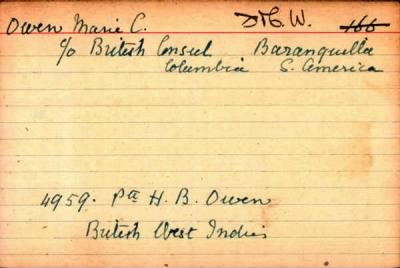 Owen Marie C. W. 166
c/o British Consul Baranquilla
Columbia S. America
4959. Pte H. B. Owen
British West Indies